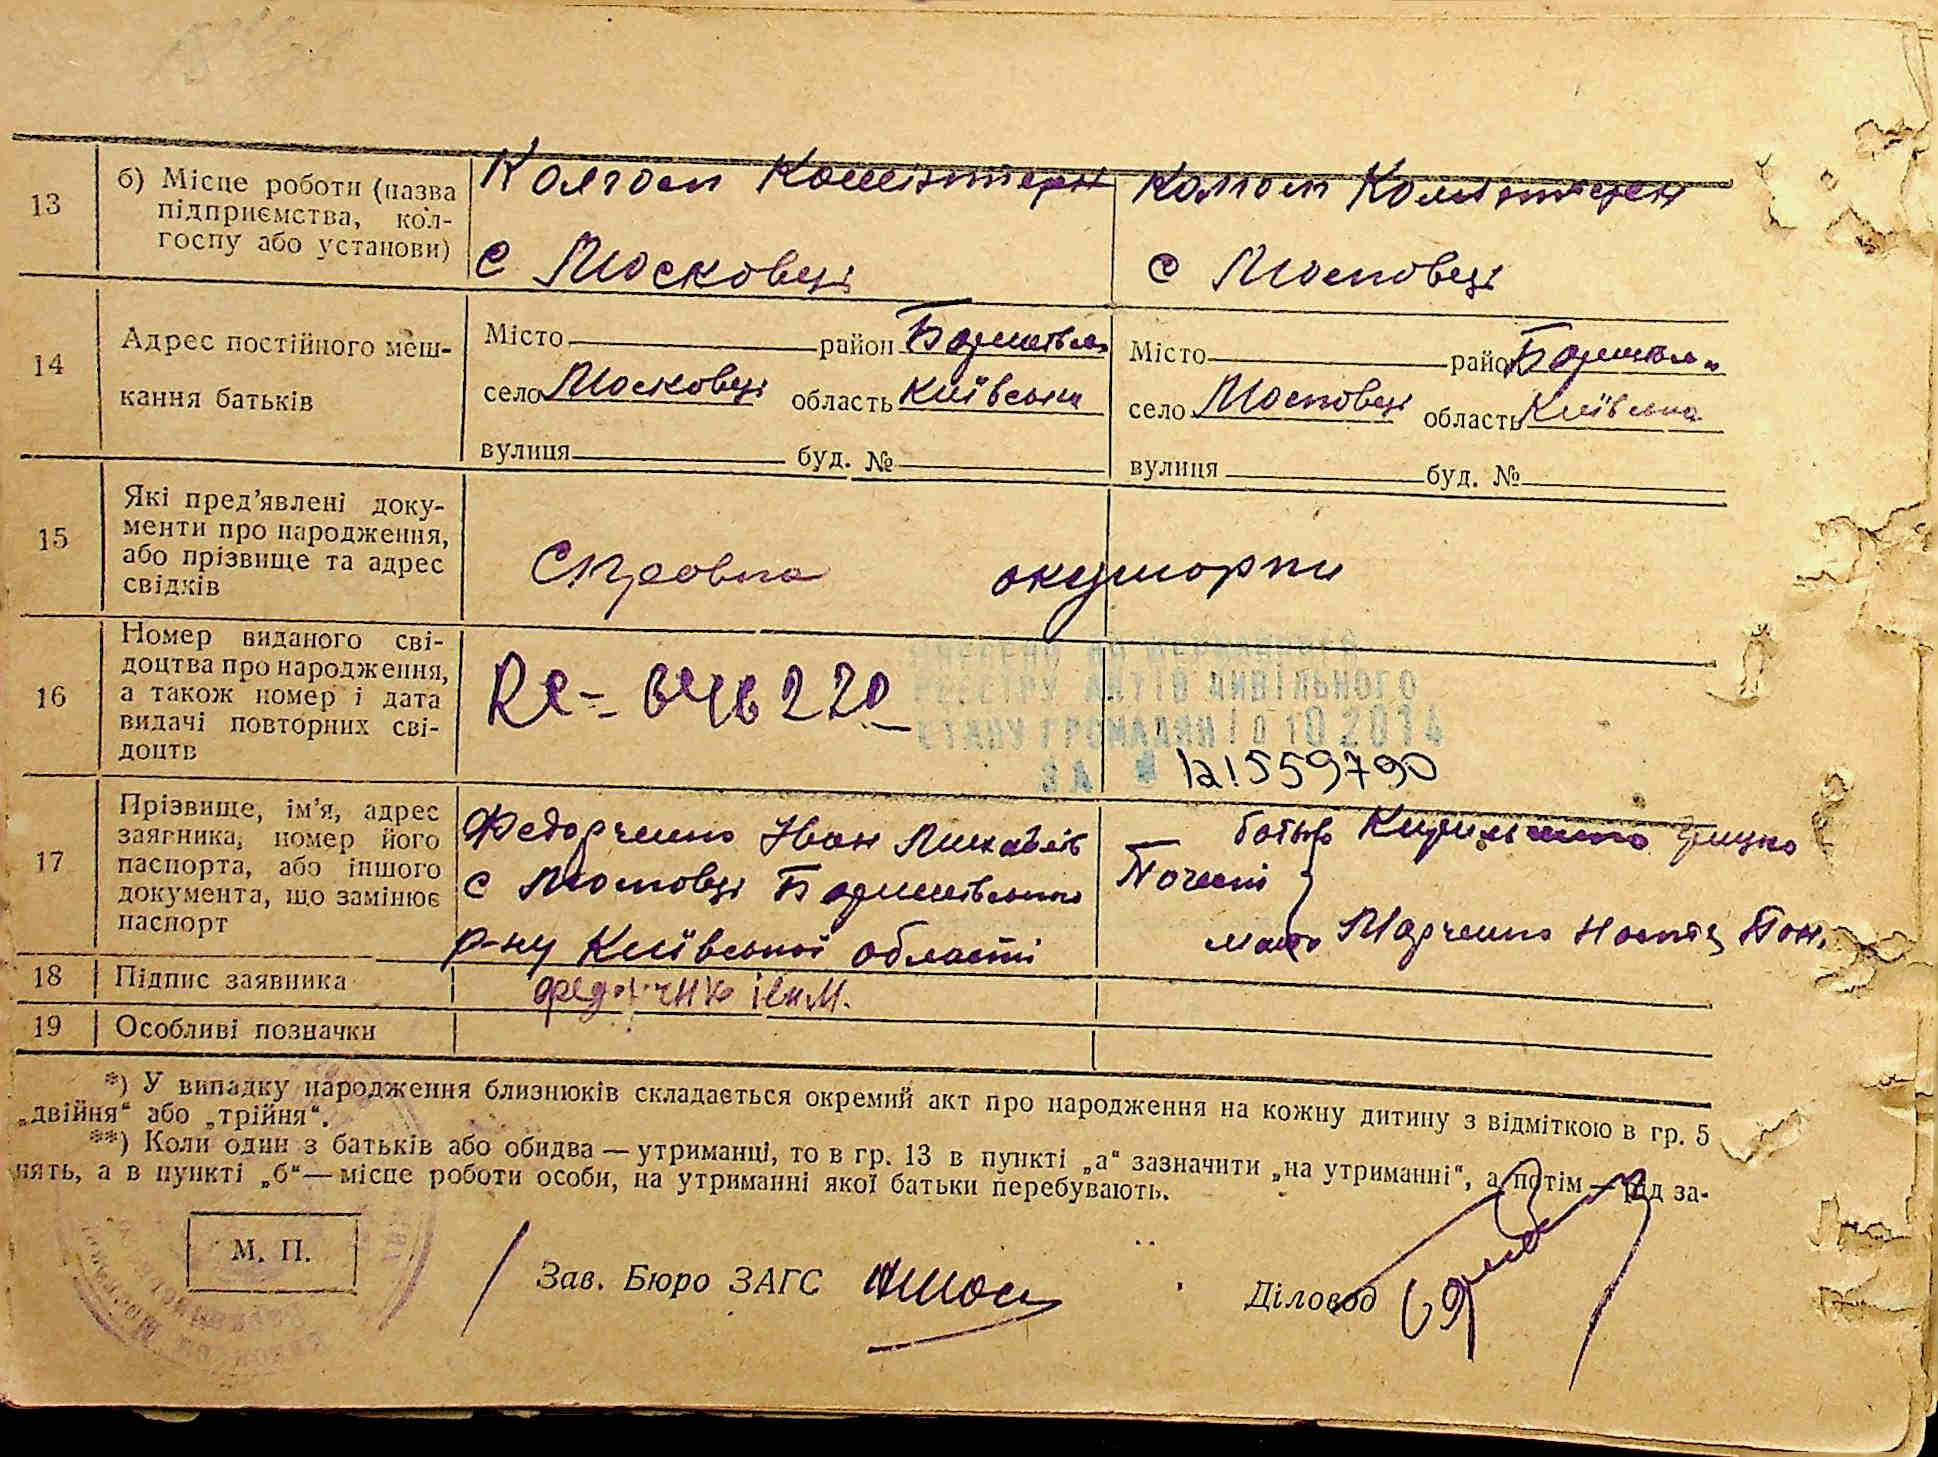 13
б) Місце роботи (назва
підприємства, кол-
госпу або установи)
Колгосп Комінтерн
с Московці
Колгосп Комінтерн
с Московці
14
Адрес постійного меш-
кання батьків
Місто район Баришівськ
село Московці область Київська
вулиця буд. №
Місто район Баришівськ
село Московці область Київська
вулиця буд. №
15
Які пред’явлені доку-
менти про народження,
або прізвище та адрес
свідків
акушорки
16
Номер виданого сві-
доцтва про народження,
а також номер і дата
видачі повторних сві-
доцтв
046220
ВНЕСЕНО ДО ДЕРЖАВНОГО
РЕЄСТРУ АКТІВ ЦИВІЛЬНОГО
СТАНУ ГРОМАДЯН 10 10 2014
ЗА № 121559790
17
Прізвище, ім’я, адрес
заявника, номер його
паспорта, або іншого
документа, що замінює
паспорт
Федорченко Іван Михайлів
с Московці Баришівського
р-ну Київської області
батько Грицько
мати Марченко Настя
18
Підпис заявника
19
Особливі позначки
*) У випадку народження близнюків складається окремий акт про народження на кожну дитину з відміткою в гр. 5
„двійня“ або „трійня“.
**) Коли один з батьків або обидва — утриманці, то в гр. 13 в пункті „а“ зазначити „на утриманні“, а потім — рід за-
нять, а в пункті „б“ — місце роботи особи, на утриманні якої батьки перебувають.
М. П.
Зав. Бюро ЗАГС
Діловод